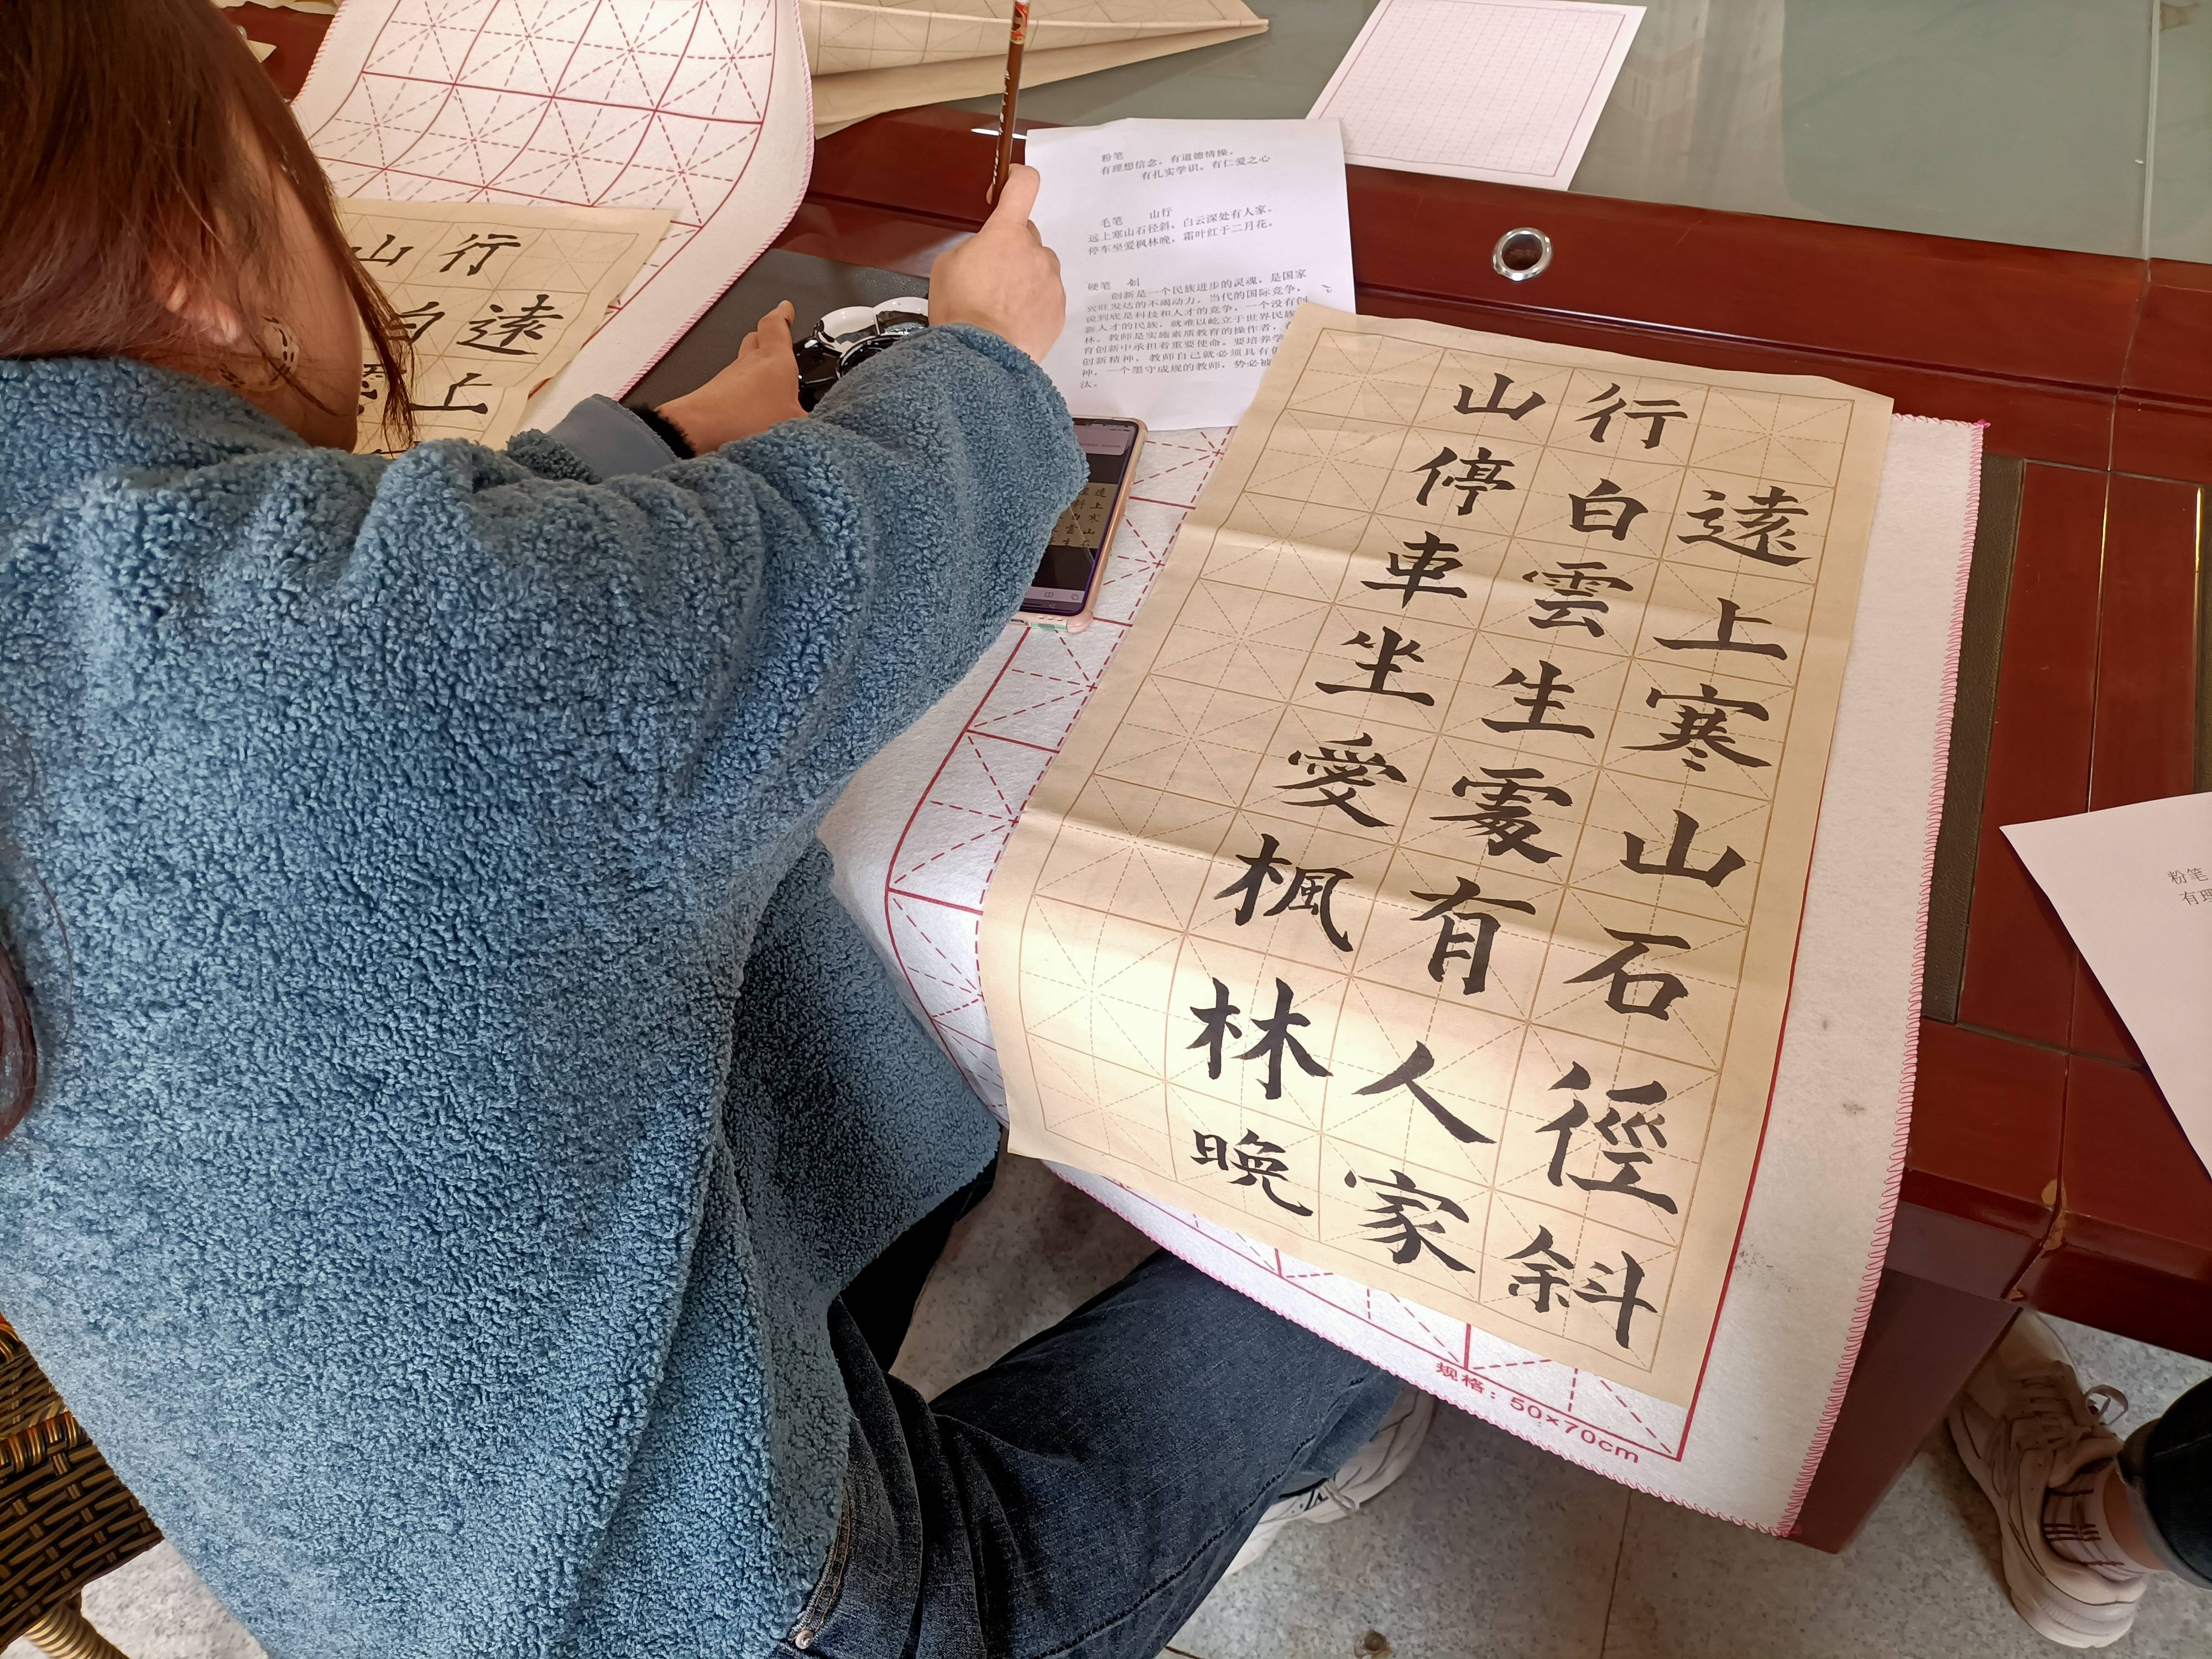 山行
遠上寒山石徑斜
白雲生處有人家
停車坐愛楓林晚
粉笔
有理想信念，有道德情操，
有扎实学识，有仁爱之心
毛笔 山行
远上寒山石径斜，白云深处有人家。
停车坐爱枫林晚，霜叶红于二月花。
硬笔 创
创新是一个民族进步的灵魂，是国家
兴旺发达的不竭动力。当代的国际竞争，
说到底是科技和人才的竞争，一个没有创
新人才的民族，就难以屹立于世界民族
林。教师是实施素质教育的操作者，
育创新中承担着重要使命。要培养学
创新精神，教师自己就必须具有
神，一个墨守成规的教师，势必被
汰。
山行
遠上
白
规格：50×70cm
粉笔
有理